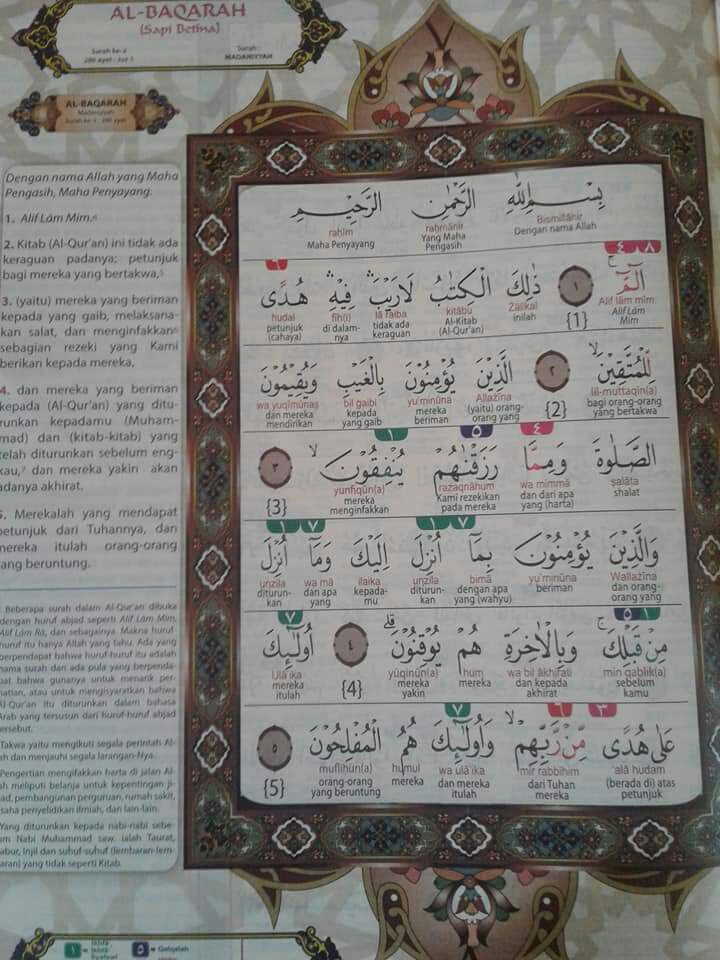 AL-BAQARAH
(Sapi Betina)
Surah ke-2
286 ayat : Juz 1
Surah :
MADANIYYAH
AL-BAQARAH
Madaniyyah
Surah ke-2 : 286 ayat
Dengan nama Allah yang Maha
Pengasih, Maha Penyayang.
1. Alif Lām Mīm.
2. Kitab (Al-Qur'an) ini tidak ada
keraguan padanya; petunjuk
bagi mereka yang bertakwa,
3. (yaitu) mereka yang beriman
kepada yang gaib, melaksana-
kan salat, dan menginfakkan
sebagian rezeki yang Kami
berikan kepada mereka,
4. dan mereka yang beriman
kepada (Al-Qur'an) yang ditu-
runkan kepadamu (Muham-
mad) dan (kitab-kitab) yang
telah diturunkan sebelum eng-
kau, dan mereka yakin akan
adanya akhirat.
5. Merekalah yang mendapat
petunjuk dari Tuhannya, dan
mereka itulah orang-orang
yang beruntung.
Beberapa surah dalam Al-Qur'an dibuka
dengan huruf abjad seperti Alif Lām Mīm,
Alif Lām Rā, dan sebagainya. Makna huruf-
huruf itu hanya Allah yang tahu. Ada yang
berpendapat bahwa huruf-huruf itu adalah
nama surah dan ada pula yang berpenda-
pat bahwa gunanya untuk menarik per-
hatian, atau untuk mengisyaratkan bahwa
Al-Qur'an itu diturunkan dalam bahasa
Arab yang tersusun dari huruf-huruf abjad
tersebut.
Takwa yaitu mengikuti segala perintah Al-
lah dan menjauhi segala larangan-Nya.
Pengertian mengifakkan harta di jalan Al-
lah meliputi belanja untuk kepentingan ji-
had, pembangunan perguruan, rumah sakit,
usaha penyelidikan ilmiah, dan lain-lain.
Yang diturunkan kepada nabi-nabi sebe-
lum Nabi Muhammad saw. ialah Taurat,
Zabur, Injil dan suhuf-suhuf (lembaran-lem-
baran) yang tidak seperti Kitab.
بِسْمِ اللّٰهِ الرَّحْمٰنِ الرَّحِيْمِ
Bismillāhir raḥmānir raḥīm
Dengan nama Allah Yang Maha Pengasih Maha Penyayang
٨ ٤ ٩
الۤمّۤ ۚ ١ ذٰلِكَ الْكِتٰبُ لَا رَيْبَ ۛ فِيْهِ ۛ هُدًى
Alif lām mīm. {1} Żālikal kitābu lā raiba fīh(i) hudal
Alif Lām Mīm inilah Al-Kitab (Al-Qur'an) tidak ada keraguan di dalam-nya petunjuk (cahaya)
لِّلْمُتَّقِيْنَ ۙ ٢ الَّذِيْنَ يُؤْمِنُوْنَ بِالْغَيْبِ وَيُقِيْمُوْنَ
lil-muttaqīn(a) {2} Allażīna yu'minūna bil gaibi wa yuqīmūnaṣ
bagi orang-orang yang bertakwa (yaitu) orang-orang yang mereka beriman kepada yang gaib dan mereka mendirikan
٤ ٥ ١
الصَّلٰوةَ وَمِمَّا رَزَقْنٰهُمْ يُنْفِقُوْنَ ۙ ٣
ṣalāta wa mimmā razaqnāhum yunfiqūn(a) {3}
shalat dan dari apa yang (harta) Kami rezekikan pada mereka mereka menginfakkan
٧ ١ ٧ ١
وَالَّذِيْنَ يُؤْمِنُوْنَ بِمَآ اُنْزِلَ اِلَيْكَ وَمَآ اُنْزِلَ
Wallażīna yu'minūna bimā unzila ilaika wa mā unzila
dan orang-orang yang beriman dengan apa yang (wahyu) diturun-kan kepada-mu dan apa yang diturun-kan
١ ٥ ٧
مِنْ قَبْلِكَ ۚ وَبِالْاٰخِرَةِ هُمْ يُوْقِنُوْنَ ۗ ٤ اُولٰۤىِٕكَ
min qablik(a) wa bil ākhirati hum yūqinūn(a) {4} Ulā'ika
sebelum kamu dan kepada akhirat mereka mereka yakin mereka itulah
٣ ٦ ٧
عَلٰى هُدًى مِّنْ رَّبِّهِمْ ۙ وَاُولٰۤىِٕكَ هُمُ الْمُفْلِحُوْنَ ٥
'alā hudam mir rabbihim wa ulā'ika humul mufliḥūn(a) {5}
(berada di) atas petunjuk dari Tuhan mereka dan mereka itulah mereka orang-orang yang beruntung
١ ٥ = Qalqalah